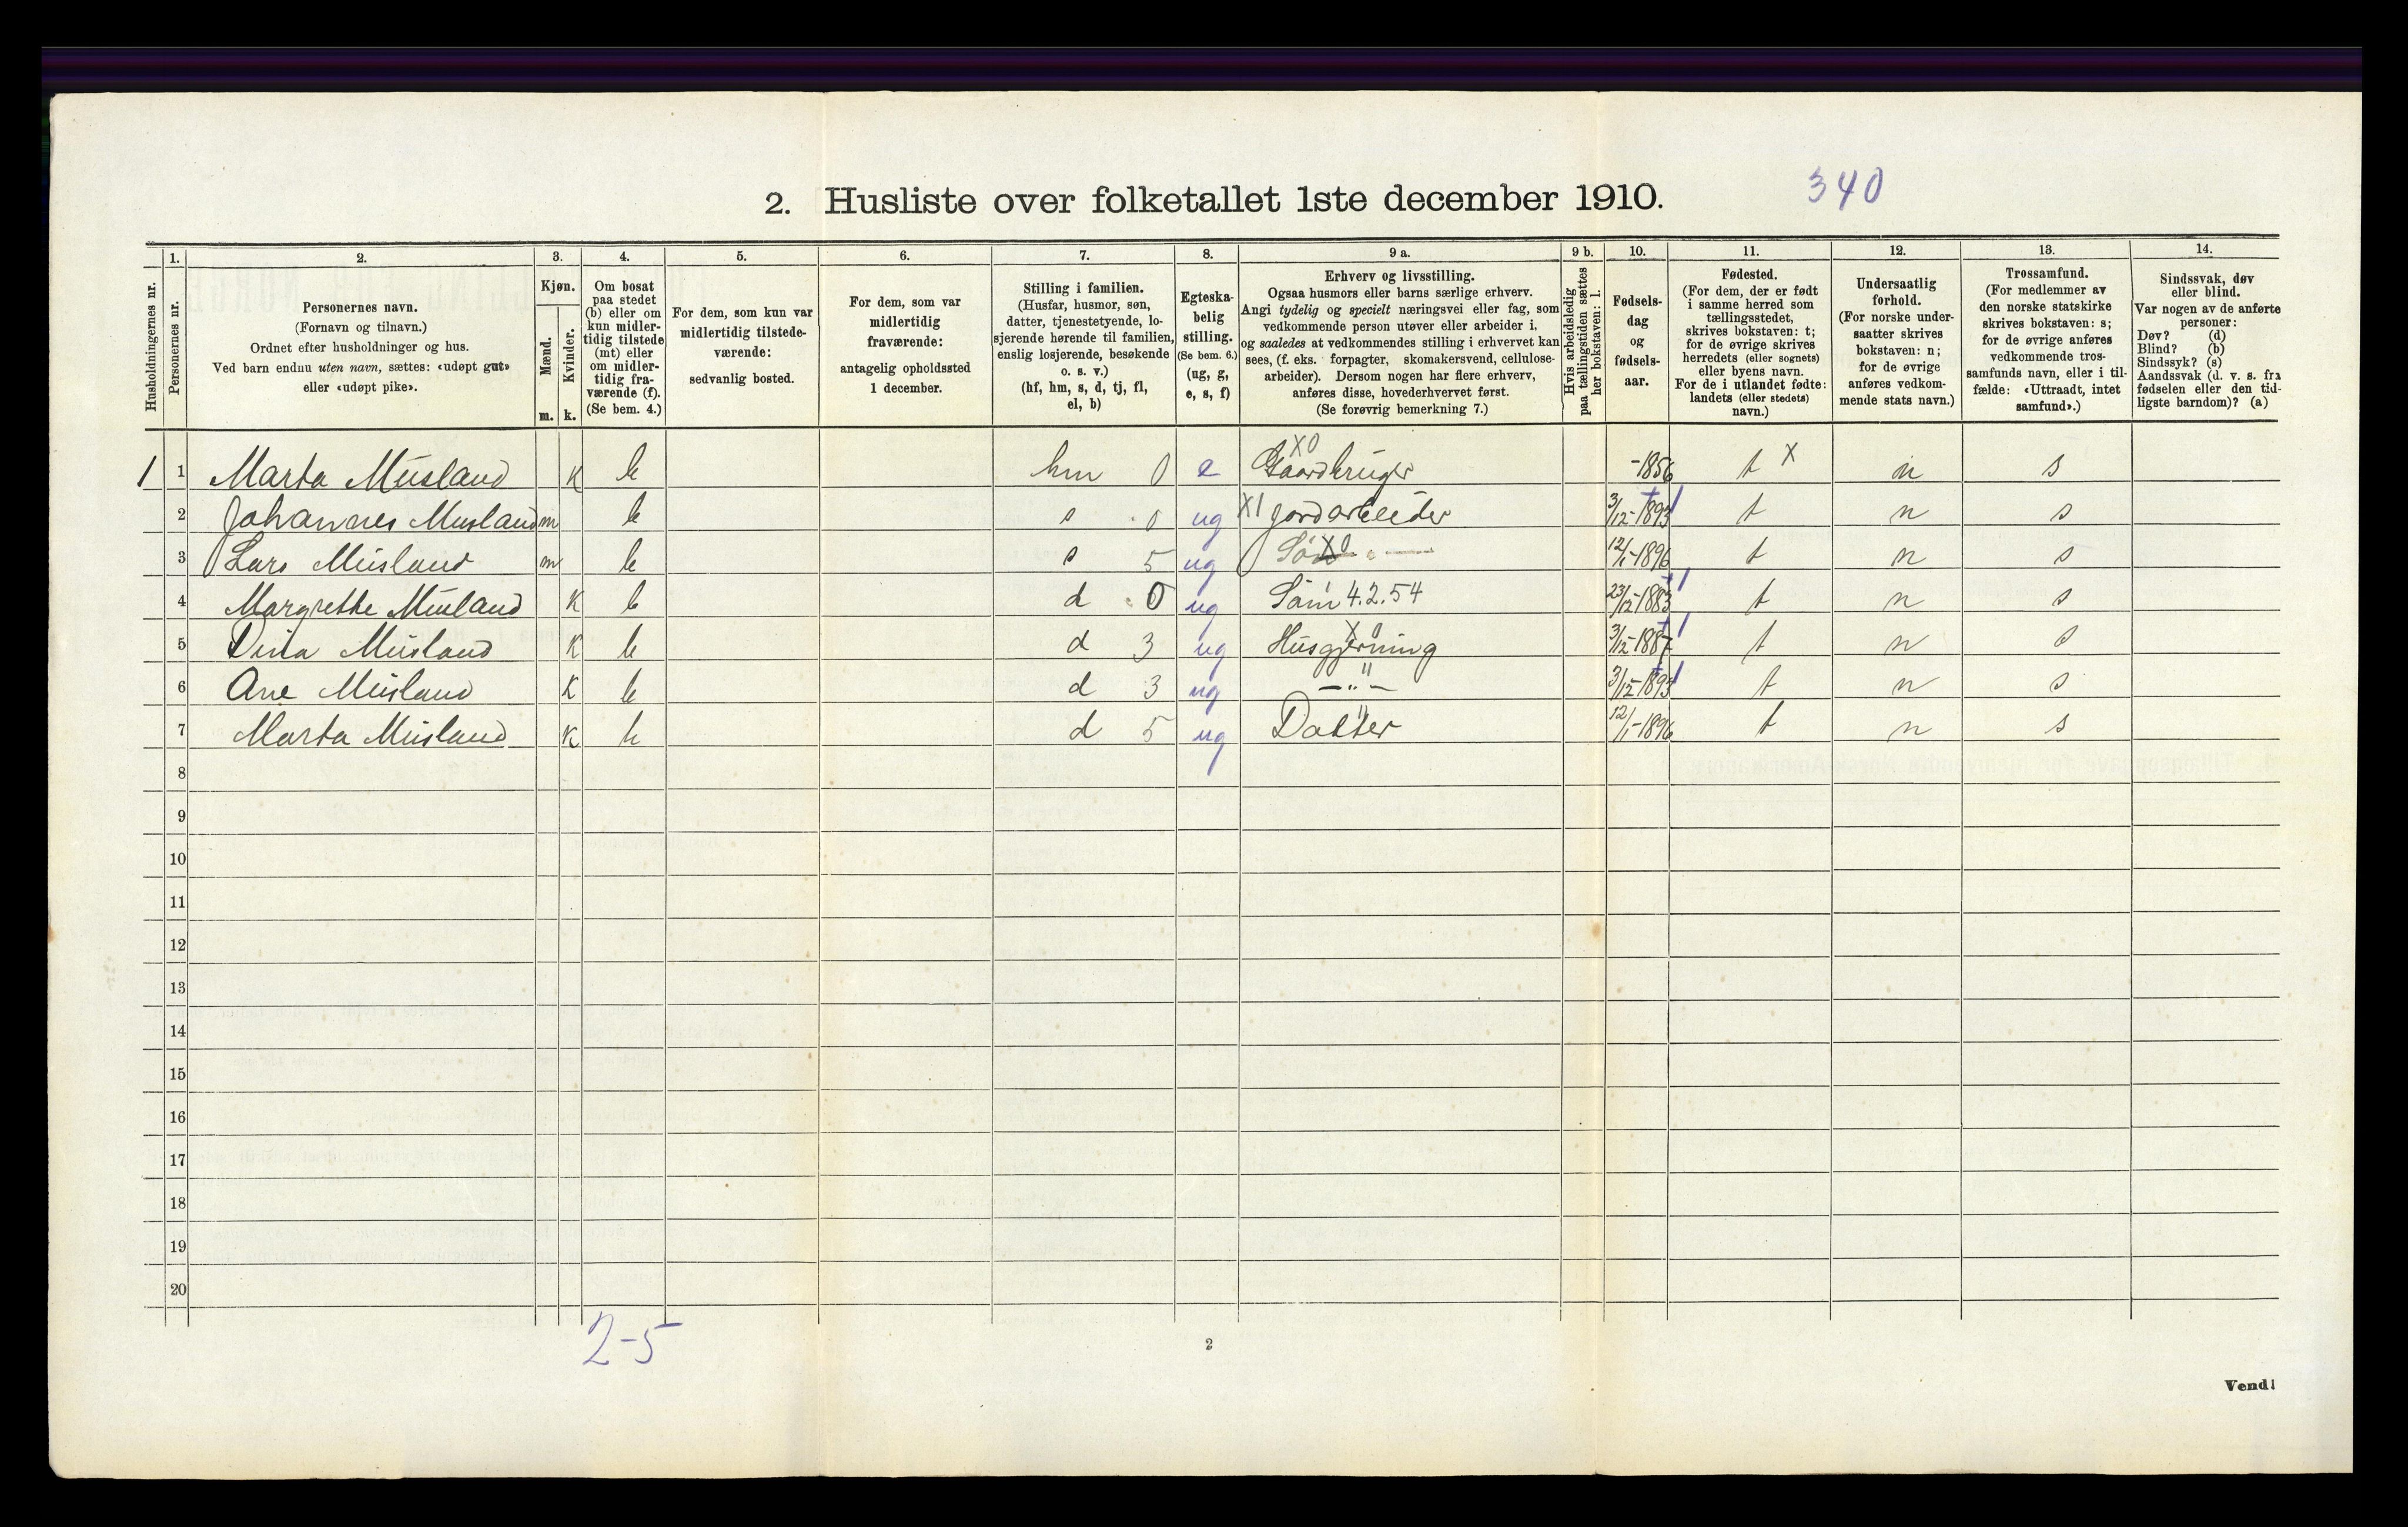 2. Husliste over folketallet 1ste december 1910. 340
Husholdningernes nr.
1.
Personernes nr.
2.
Personernes navn.
(Fornavn og tilnavn.)
Ordnet efter husholdninger og hus.
Ved barn endnu uten navn, sættes: «udøpt gut»
eller «udøpt pike».
3.
Kjøn.
Mænd.
m.
Kvinder.
k.
4.
Om bosat
paa stedet
(b) eller om
kun midler-
tidig tilstede
(mt) eller
om midler-
tidig fra-
værende (f).
(Se bem. 4.)
5.
For dem, som kun var
midlertidig tilstede-
værende:
sedvanlig bosted.
6.
For dem, som var
midlertidig
fraværende:
antagelig opholdssted
1 december.
7.
Stilling i familien.
(Husfar, husmor, søn,
datter, tjenestetyende, lo-
sjerende hørende til familien,
enslig losjerende, besøkende
o. s. v.)
(hf, hm, s, d, tj, fl,
el, b)
8.
Egteska-
belig
stilling.
(Se bem. 6.)
(ug, g,
e, s, f)
9 a.
Erhverv og livsstilling.
Ogsaa husmors eller barns særlige erhverv.
Angi tydelig og specielt næringsvei eller fag, som
vedkommende person utøver eller arbeider i,
og saaledes at vedkommendes stilling i erhvervet kan
sees, (f. eks. forpagter, skomakersvend, cellulose-
arbeider). Dersom nogen har flere erhverv,
anføres disse, hovederhvervet først.
(Se forøvrig bemerkning 7.)
9 b.
Hvis arbeidsledig
paa tællingstiden sættes
her bokstaven: l.
10.
Fødsels-
dag
og
fødsels-
aar.
11.
Fødested.
(For dem, der er født
i samme herred som
tællingsstedet,
skrives bokstaven: t;
for de øvrige skrives
herredets (eller sognets)
eller byens navn.
For de i utlandet fødte:
landets (eller stedets)
navn.)
12.
Undersaatlig
forhold.
(For norske under-
saatter skrives
bokstaven: n;
for de øvrige
anføres vedkom-
mende stats navn.)
13.
Trossamfund.
(For medlemmer av
den norske statskirke
skrives bokstaven: s;
for de øvrige anføres
vedkommende tros-
samfunds navn, eller i til-
fælde: «Uttraadt, intet
samfund».)
14.
Sindssvak, døv
eller blind.
Var nogen av de anførte
personer:
Døv? (d)
Blind? (b)
Sindssyk? (s)
Aandssvak (d. v. s. fra
fødselen eller den tid-
ligste barndom)? (a)
1 1 Marta Musland K b hm 0 e X0 Gaardbruger -1856 t X n s
2 Johannes Musland m b s 0 ug X1 jordarbeider 3/12-1893 t n s
3 Lars Musland m b s 5 ug Søn X0 12/1-1896 t n s
4 Margrethe Musland K b d 0 ug Søm 4.2.54 23/12-1883 t n s
5 Dina Musland K b d 3 ug X0 Husgjerning 3/12-1887 t n s
6 Ane Musland K b d 3 ug " —„— 3/12-1893 t n s
7 Marta Musland K b d 5 ug " Datter 12/1-1896 t n s
8
9
10
11
12
13
14
15
16
17
18
19
20
2-5
2
Vend!